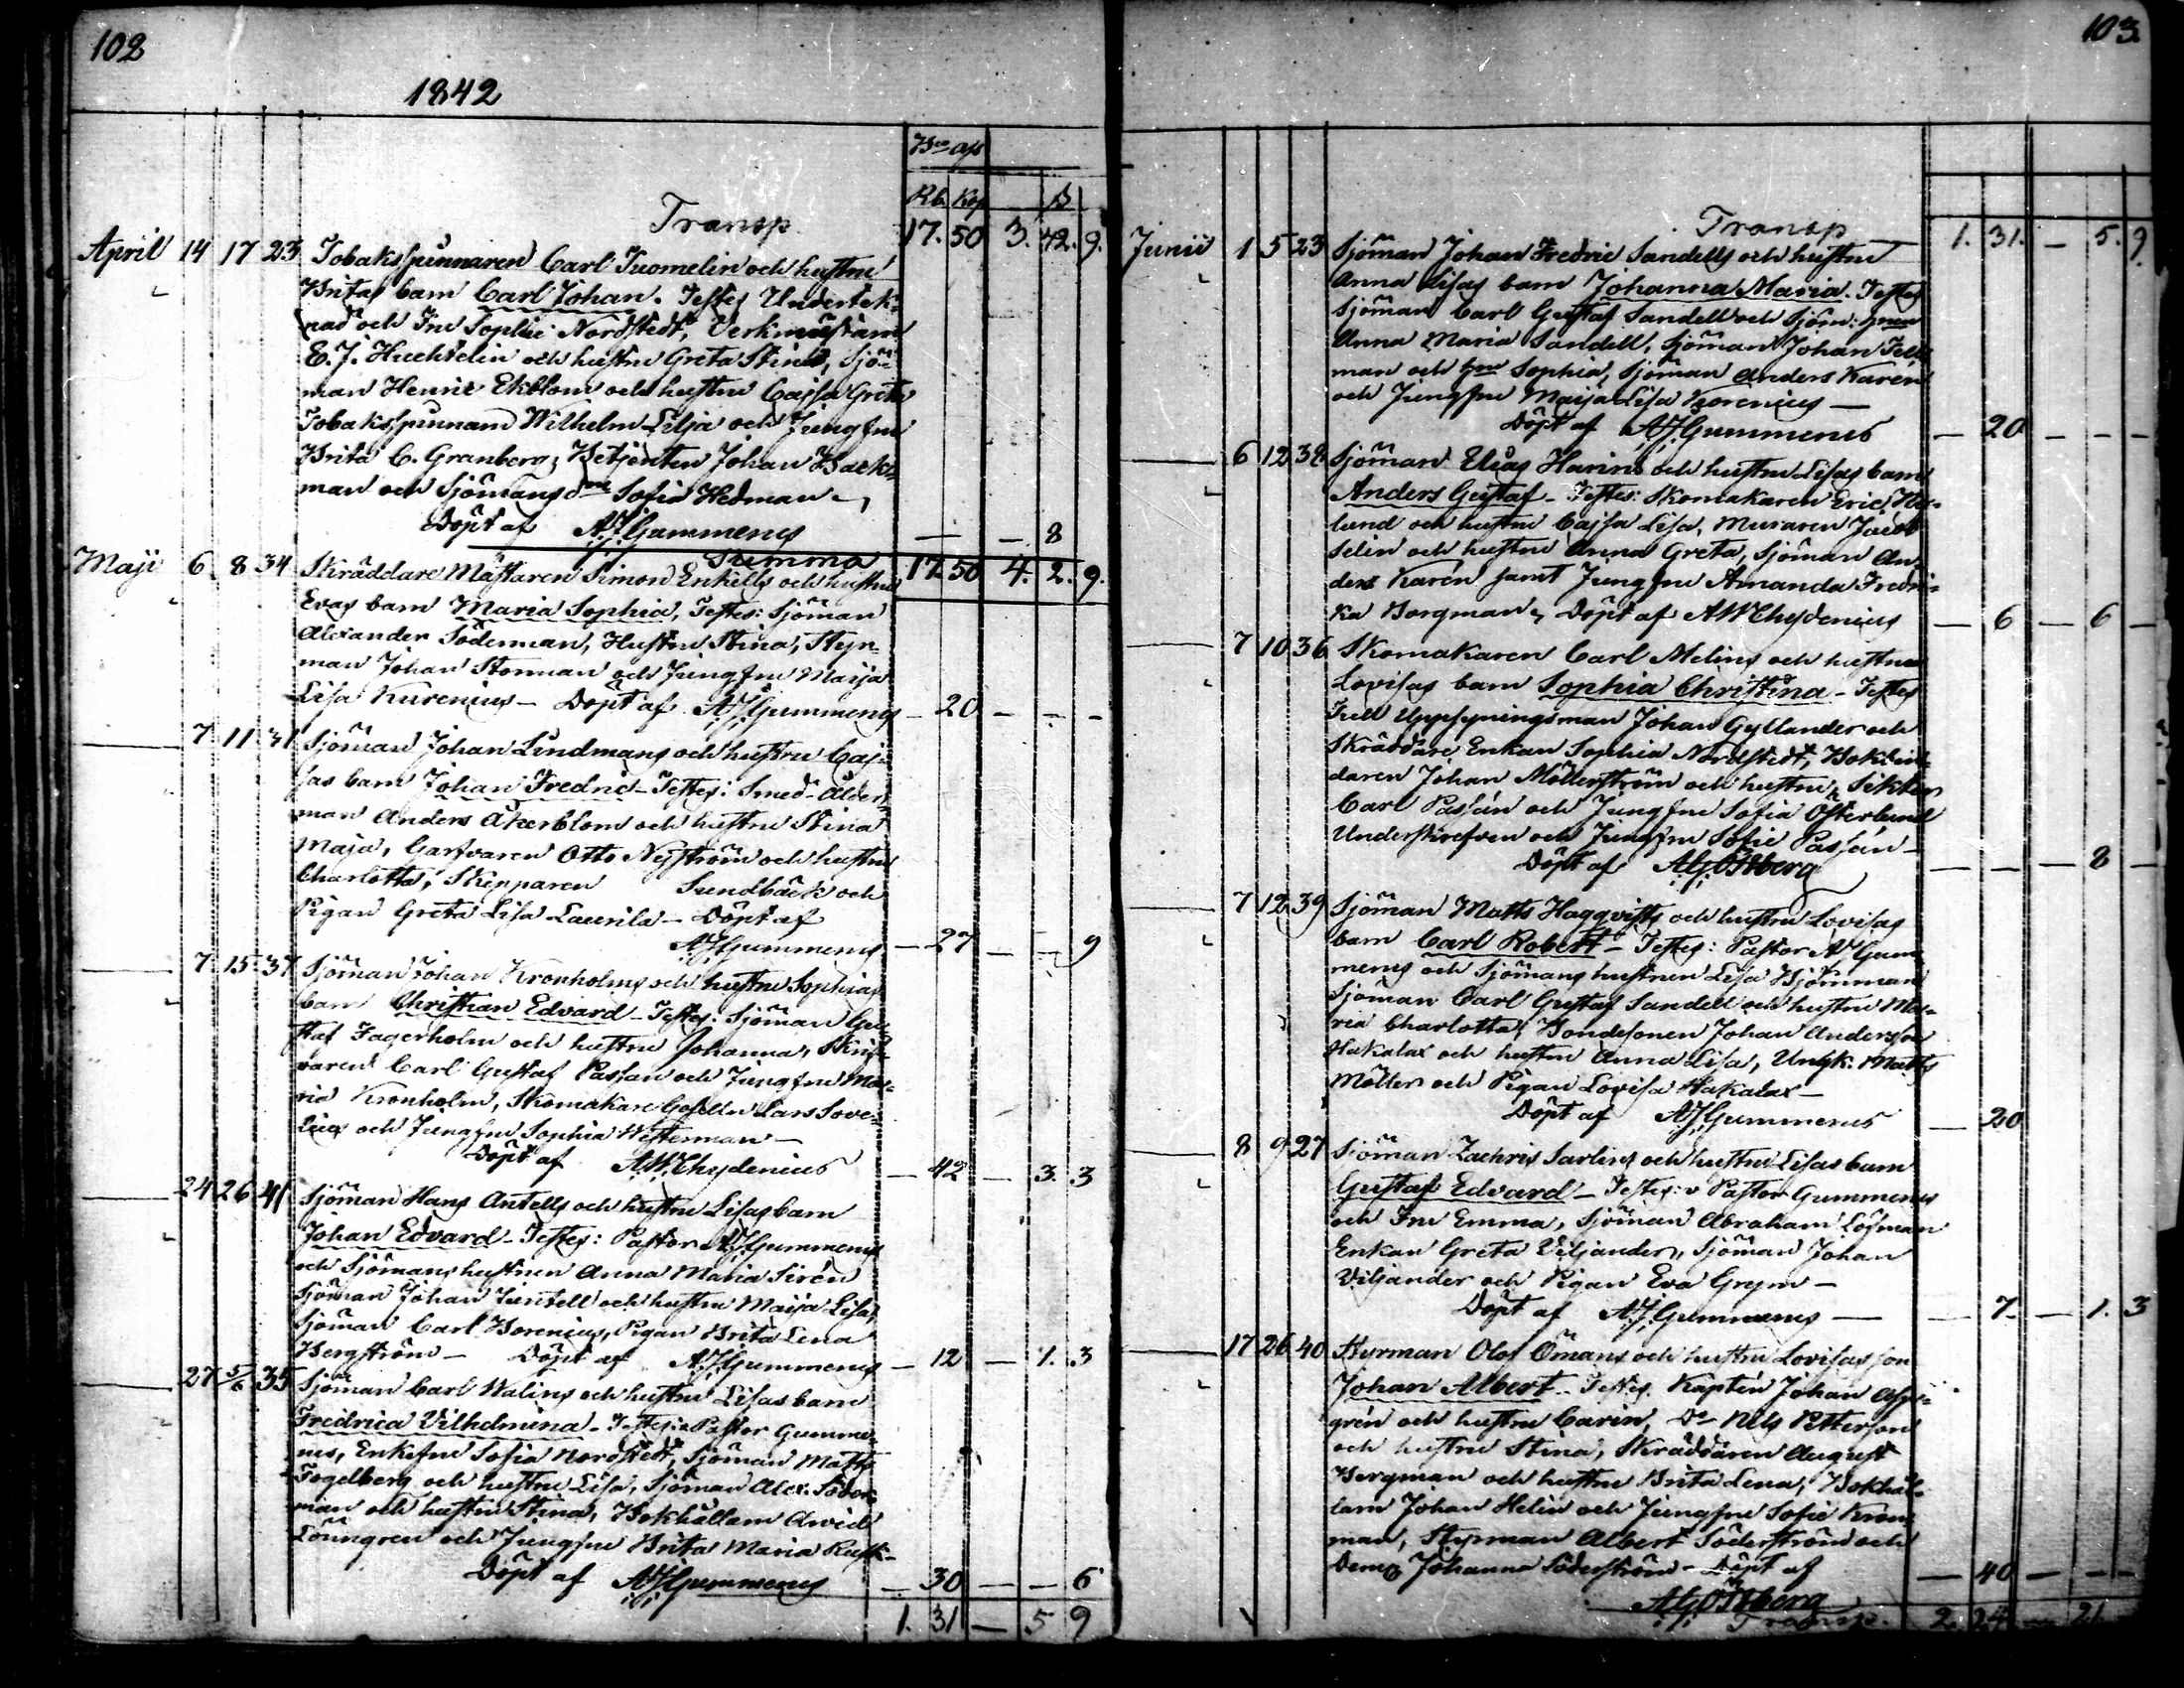 102
1842
Bco ass
Rb. Kop ß
Transp. 17. 50 3. 42. 9.
April 14 17 23 Tobaksspinnaren Carl Tuomelin och hustru
Britas barn Carl Johan. Testes Underteck-
nad och Fru Sophie Nordstedt, Verkmästaren
E. J. Huchtelin och hustru Greta Stina, Sjö-
man Henric Ekblom och hustru Cajsa Greta
Tobaksspinnaren Wilhelm Lilja och Jungfru
Brita C. Granberg, Betjenten Johan Back-
man och Sjömans Sofia Hedman
Döpt af AJGummerus — — 8
Summa 17. 50 4. 2. 9.
Maji 6 8 34 Skräddare Mästaren Simon Enkells och hustru
Evas barn Maria Sophia, Testes: Sjöman
Alexander Söderman, Hustru Stina, Styr-
man Johan Storman och Jungfru Maija
Lisa Kurenius — Döpt af AJGummerus — 20 — — —
7 11 31 Sjöman Johan Lindmans och hustru Caj-
sas barn Johan Fredric — Testes: Smed-Ålder-
man Anders Åkerblom och hustru Stina
Maja, Garfvaren Otto Nyström och hustru
Charlotta, Skepparen Sundbäck och
Pigan Greta Lisa Laurila — Döpt af
AJGummerus — 27 — — 9
7 15 37 Sjöman Johan Kronholms och hustru Sophias
barn Christian Edvard — Testes: Sjöman Gu-
staf Fagerholm och hustru Johanna, Skrif-
varen Carl Gustaf Passan och Jungfru Ma-
ria Kronholm, Skomakare Gesellen Lars Love-
lius och Jungfru Sophia Westerman —
Döpt af A.W.Chydenius — 42 — 3. 3
24 26 41 Sjöman Hans Antells och hustru Lisas barn
Johan Edvard — Testes: Pastor AJGummerus
och Sjömanshustrun Anna Maria Sirén
Sjöman Johan Juntell och hustru Maija Lisa,
Sjöman Carl Borenius, Pigan Brita Lena
Bergström — Döpt af AJGummerus — 12 — 1. 3
27 5/6 35 Sjöman Carl Walins och hustru Lisas barn
Fredrica Vilhelmina — Testes: Pastor Gumme-
rus, Enkefru Sofia Nordstedt, Sjöman Matts
Fogelberg och hustru Lisa, Sjöman Alex. Söder-
man och hustru Stina, Bokhållaren Arvid
Löungren och Jungfru Brita Maria
Döpt af AJGummerus — 30 — — 6
1. 31 — 5 9
103
Transp 1. 31. — 5. 9.
Junii 1 5 23 Sjöman Johan Fredric Sandells och hustru
Anna Lisas barn Johanna Maria. Testes
Sjöman Carl Gustaf Sandell och Sjöm:
Anna Maria Sandell, Sjöman Johan Fell-
man och Sophia, Sjöman Anders Karén
och Jungfru Maija Lisa Borenius —
Döpt af AJGummerus — 20 — — —
6 12 38 Sjöman Elias Harins och hustru Lisas barn
Anders Gustaf — Testes: Skomakaren Eric
lund och hustru Cajsa Lisa, Muraren Jacob
Selin och hustru Anna Greta, Sjöman An-
ders Karén samt Jungfru Amanda Fredri-
ka Borgman, Döpt af AWChydenius — 6 — 6 —
7 10 36 Skomakaren Carl Melins och hustru
Lovisas barn Sophia Christina — Testes
Tull Uppsyningsman Johan Gyllander och
Skräddare Enkan Sophia Nordstedt, Bokbin-
daren Johan Möllerström och hustru,
Carl Passán och Jungfru Sofia Österlund
Underskrefven och Jungfru Sofie Passán —
Döpt af AGÖstberg — — — 8 —
7 12 39 Sjöman Matts Haggqvists och hustru Lovisas
barn Carl Robert — Testes: Pastor AJGum-
merus och Sjömans hustrun Lisa Björnman
Sjöman Carl Gustaf Sandell och hustru Ma-
ria Charlotta, Bondesonen Johan Andersson
Hakalax och hustru Anna Lisa, Ungk. Matts
Möller och Pigan Lovisa Hakalax —
Döpt af AJGummerus — 20
8 9 27 Sjöman Zachris Sarlins och hustru Lisas barn
Gustaf Edvard — Testes: Pastor Gummerus
och Fru Emma, Sjöman Abraham Löfman
Enkan Greta Viljander, Sjöman Johan
Viljander och Pigan Eva Grym —
Döpt af AJGummerus — 7. — 1. 3
17 26 40 Styrman Olof Ömans och hustru Lovisas son
Johan Albert — Testes. Kaptén Johan Aspe-
grén och hustru Carin, Do Nils Petterson
och hustru Stina, Skräddaren August
Bergman och hustru Brita Lena, Bokhål-
laren Johan Helin och Jungfru Sofie Kron-
man, Styrman Albert Söderström och
Dems. Johanna Söderström — Döpt af — 40 — — —
AGÖstberg
Transp. 2. 24 — 21